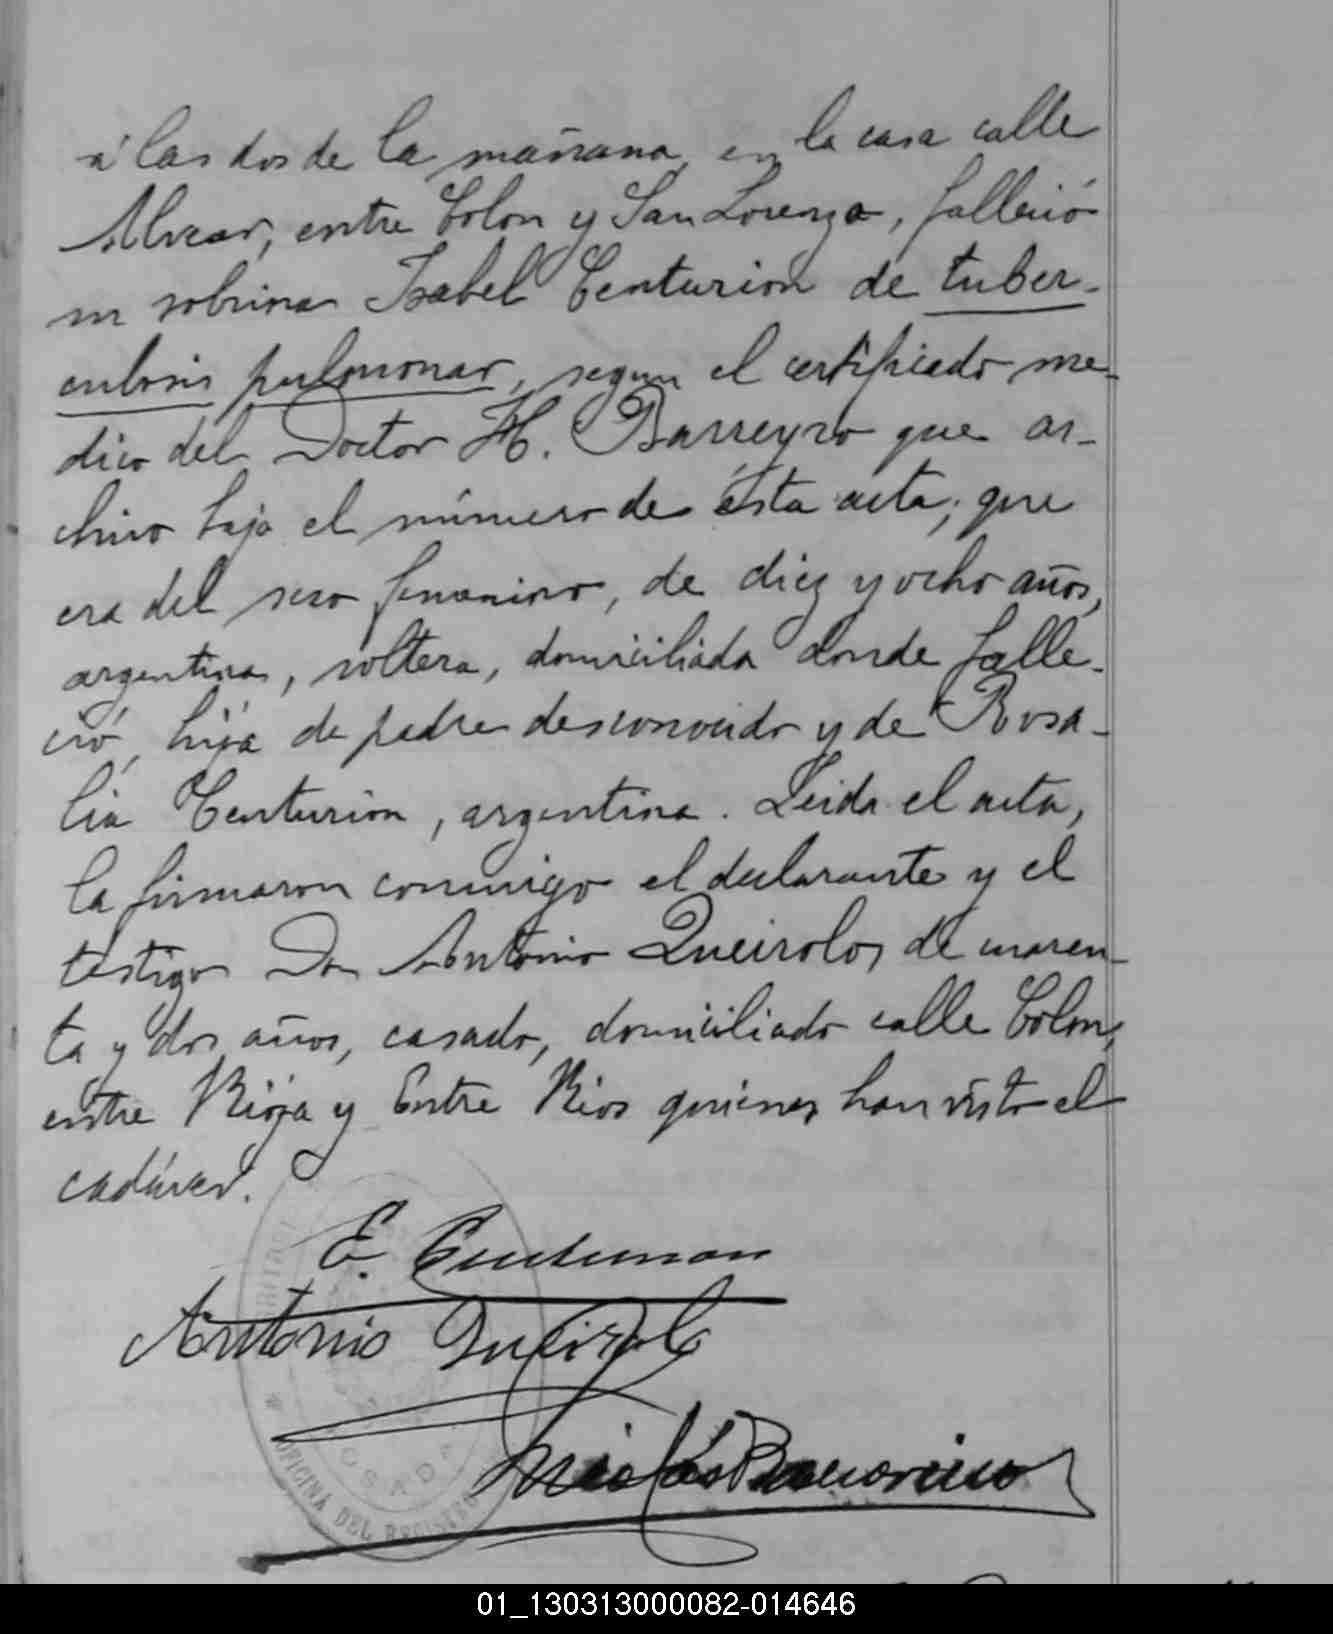 á las dos de la mañana, en la casa calle
Alvear, entre Colon y San Lorenzo, falleció
su sobrina Isabel Centurion de tuber-
culosis pulmonar, segun el certificado me-
dico del Doctor H. Barreyro que ar-
chivo bajo el número de ésta acta; que
era del sexo femenino, de diez y ocho años,
argentina, soltera, domiciliada donde falle-
ció, hija de padre desconocido y de Rosa-
lia Centurion, argentina. Leida el acta,
la firmaron conmigo el declarante y el
testigo Don Antonio Queirolo, de cuaren-
ta y dos años, casado, domiciliado calle Colon,
entre Rioja y Entre Rios quienes han visto el
cadáver.
E. Centurion
Antonio Queirolo
Nicolás
OFICINA DEL REGISTRO
POSADAS
01_130313000082-014646